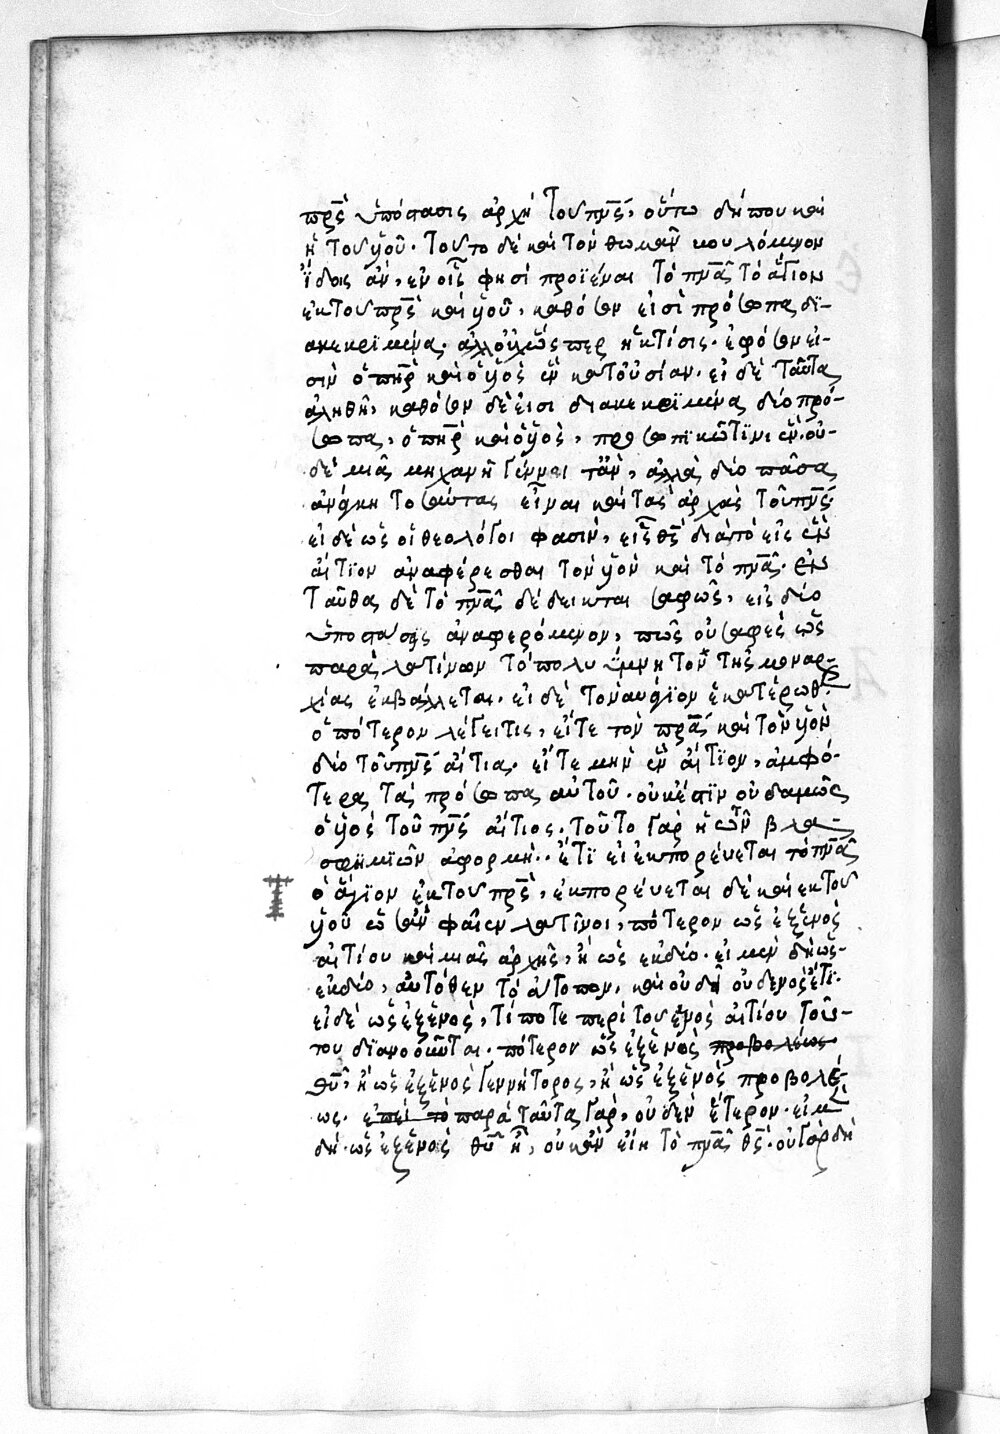 πρς ὑπόστασις ἀρχὴ τοῦ πνς, οὕτω δήπου καὶ
ἡ τοῦ υἱοῦ. τοῦτο δὲ καὶ τὸν θωμᾶν βουλόμενον
ἴδοις ἂν, ἐν οἷς φησὶ προϊέναι τὸ πνα τὸ ἅγιον
ἐκ τοῦ πρς καὶ υἱοῦ, καθόσον εἰσὶ πρόσωπα δϊ-
ακεκριμένα. ἀλλ' οὐχ ὥσπερ ἡ κτίσις. ἐφόσον εἰ-
σὶν ὁ πηρ καὶ ὁ υἱὸς ἓν κατ' οὐσίαν. εἰ δὲ ταῦτα
ἀληθῆ, καθόσον δέ εἰσι διακεκριμένα δύο πρό-
σωπα, ὁ πηρ καὶ ὁ υἱὸς, προσωπϊκῶς τϊνι ἓν. οὐ-
δεμιᾷ μηχανῇ γένοιτ' ἂν, ἀλλὰ δύο πᾶσα
ἀνάγκη τοσαύτας εἶναι καὶ τὰς ἀρχὰς τοῦ πνς.
εἰ δὲ ὡς οἱ θεολόγοι φασὶν, εἷς θς διὰ τὸ εἰς ἓν
αἴτϊον ἀναφέρεσθαι τὸν υἱὸν καὶ τὸ πνα. ἐν
ταῦθα δὲ τὸ πνα δέδεικται σαφῶς, εἰς δύο
ὑποστάσεις ἀναφερόμενον, πῶς οὐ σαφὲς ὡς
παρὰ λατίνων τὸ πολυύμνητον τῆς μοναρ-
χίας ἐκβάλλεται. εἰ δὲ τοὐναντίον ἑκατέρωθεν
ὁπότερον λέγει τις, εἴτε τὸν πρα καὶ τὸν υἱὸν
δύο τοῦ πνς αἴτια. εἴτε μὴν ἓν αἴτϊον, ἀμφό-
τερα τὰ πρόσωπα αὐτοῦ. οὐκ ἔστϊν οὐδαμῶς
ὁ υἱὸς τοῦ πνς αἴτιος. τοῦτο γὰρ ἡ τῶν βλα-
σφημϊῶν ἀφορμή. ἔτϊ εἰ ἐκπορεύεται τὸ πνα
τὸ ἅγϊον ἐκ τοῦ πρς, ἐκπορεύεται δὲ καὶ ἐκ τοῦ
υἱοῦ ὡς ἂν φαῖεν λατῖνοι, πότερον ὡς ἐξ ἑνὸς
αἰτίου καὶ μιᾶς ἀρχῆς, ἢ ὡς ἐκ δύο. εἰ μὲν δὴ ὡς
ἐκ δύο, αὐτόθεν τὸ ἄτοπον, καὶ οὐδὲ οὐδενὸς ἔτϊ.
εἰ δὲ ὡς ἐξ ἑνὸς, τί ποτε περὶ τοῦ ἑνὸς αἰτίου τού-
του δϊανοοῦνται. πότερον ὡς ἐξ ἑνὸς προβολέως.
θυ, ἢ ὡς ἐξ ἑνὸς γεννήτορος, ἢ ὡς ἐξ ἑνὸς προβολέ-
ως. ἐπεὶ τὸ παρὰ ταῦτα γὰρ, οὐδὲν ἕτερον. εἰ μὲν
δὴ ὡς ἐξ ἑνὸς θυ ἦ, οὐκ ἂν εἴη τὸ πνα θς. οὐ γὰρ δὴ